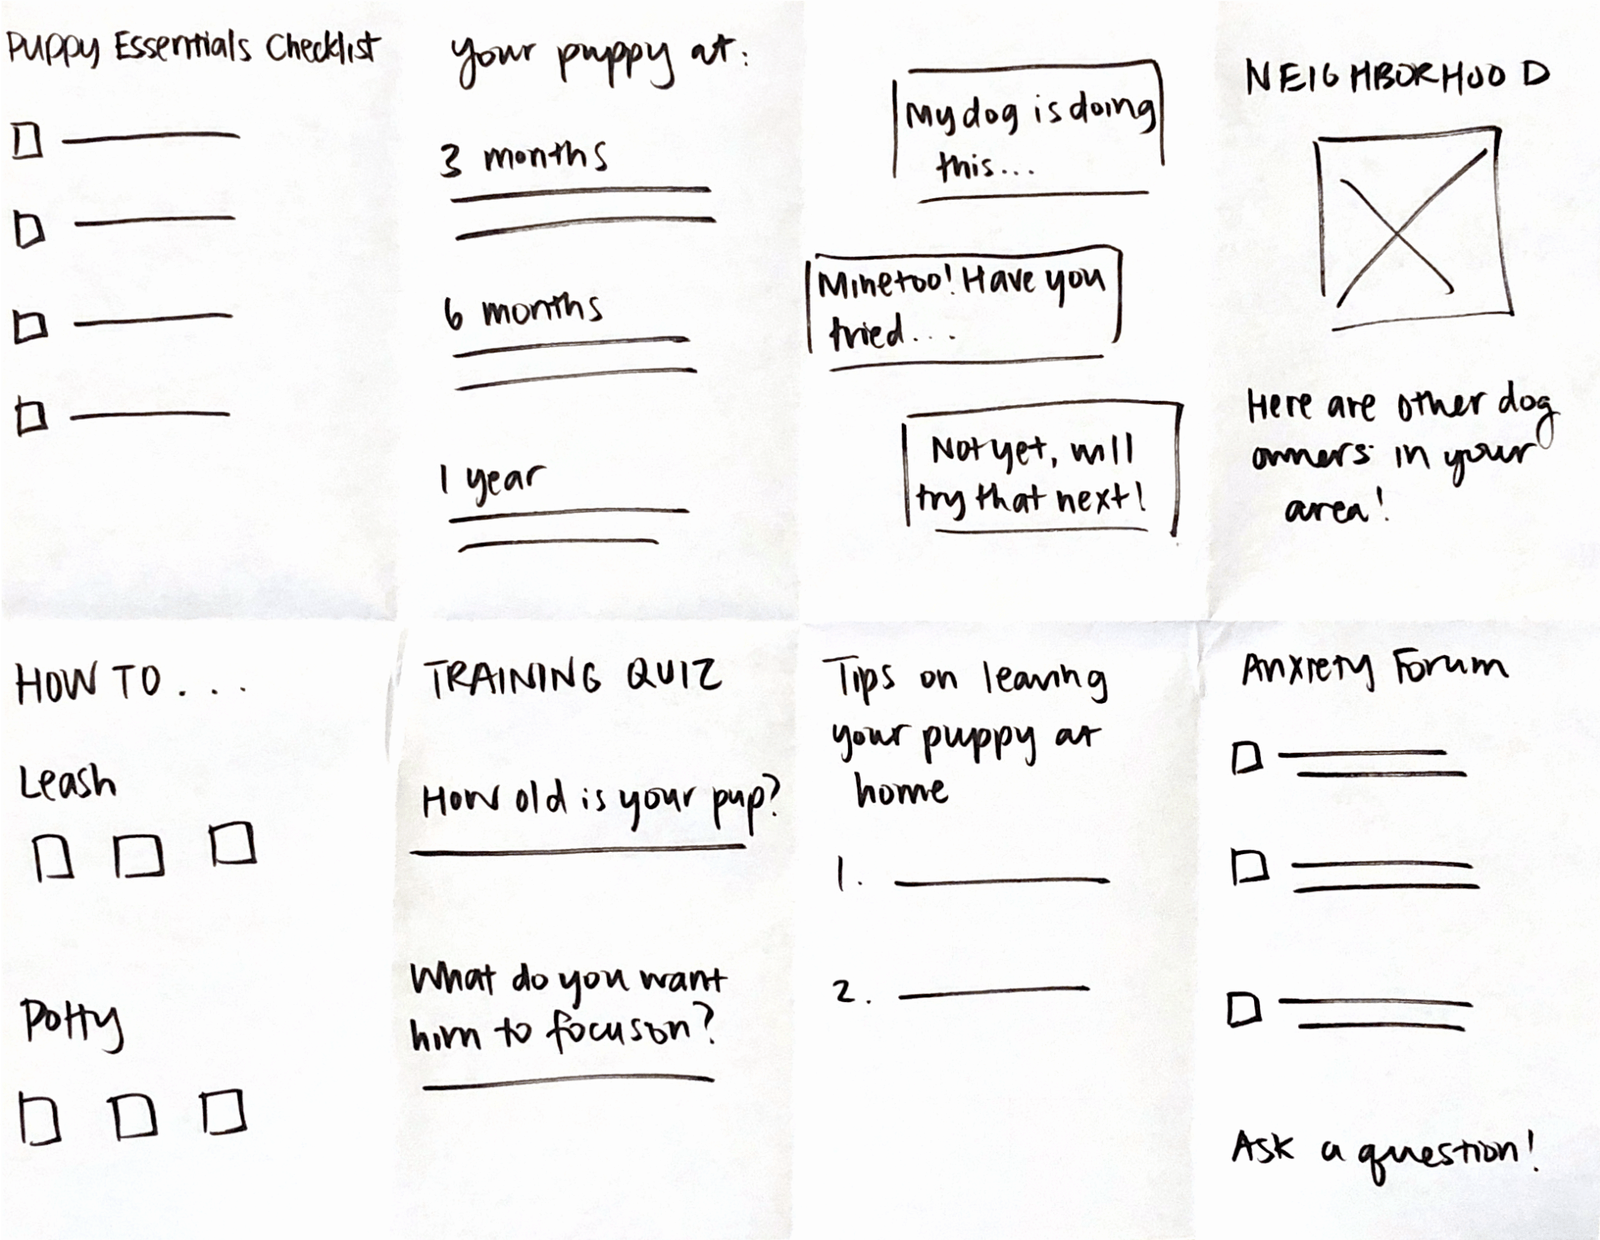 Puppy Essentials Checklist
your puppy at:
3 months
6 months
1 year
My dog is doing
this...
Mine too! Have you
tried...
Not yet, will
try that next!
NEIGHBORHOOD
Here are other dog
owners in your
area!
HOW TO...
Leash
Potty
TRAINING QUIZ
How old is your pup?
What do you want
him to focus on?
Tips on leaving
your puppy at
home
1.
2.
Anxiety Forum
Ask a question!